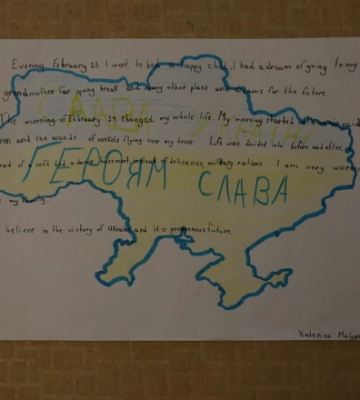 Evening February 23. I went to bed a happy child. I had a dream of going to my
grandmother for spring break and many other plans and dreams for the future.
СЛАВА УКРАЇНІ
The morning of February 24 changed my whole life. My morning started with
and the sounds of rockets flying over my house. Life was divided into before and after.
ГЕРОЯМ СЛАВА
of a soft bed a damp basement, instead of delicacies, military rations. I am very
my family.
believe in the victory of Ukraine and its prosperous future.
Kateryna